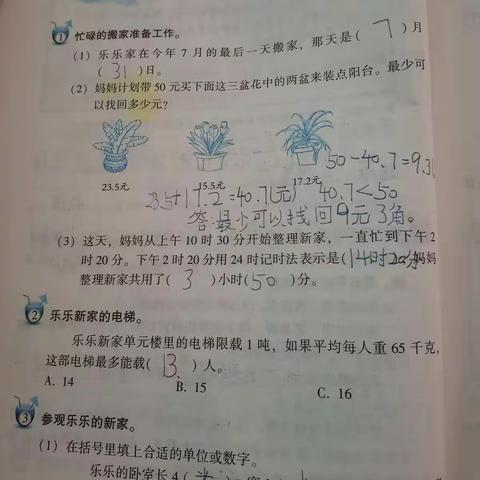 1 忙碌的搬家准备工作。
(1) 乐乐家在今年 7 月的最后一天搬家，那天是( 7 )月
( 31 )日。
(2) 妈妈计划带 50 元买下面这三盆花中的两盆来装点阳台。最少可
以找回多少元？
50-40.7=9.3
23.5元 15.5元 17.2元
23.5+17.2=40.7(元) 40.7<50
答:最少可以找回9元3角。
(3) 这天，妈妈从上午 10 时 30 分开始整理新家，一直忙到下午 2
时 20 分。下午 2 时 20 分用 24 时记时法表示是(14时20分妈妈
整理新家共用了( 3 )小时(50)分。
2 乐乐新家的电梯。
乐乐新家单元楼里的电梯限载 1 吨，如果平均每人重 65 千克，
这部电梯最多能载( 13 )人。
A. 14 B. 15 C. 16
3 参观乐乐的新家。
(1) 在括号里填上合适的单位或数字。
乐乐的卧室长 4(米)